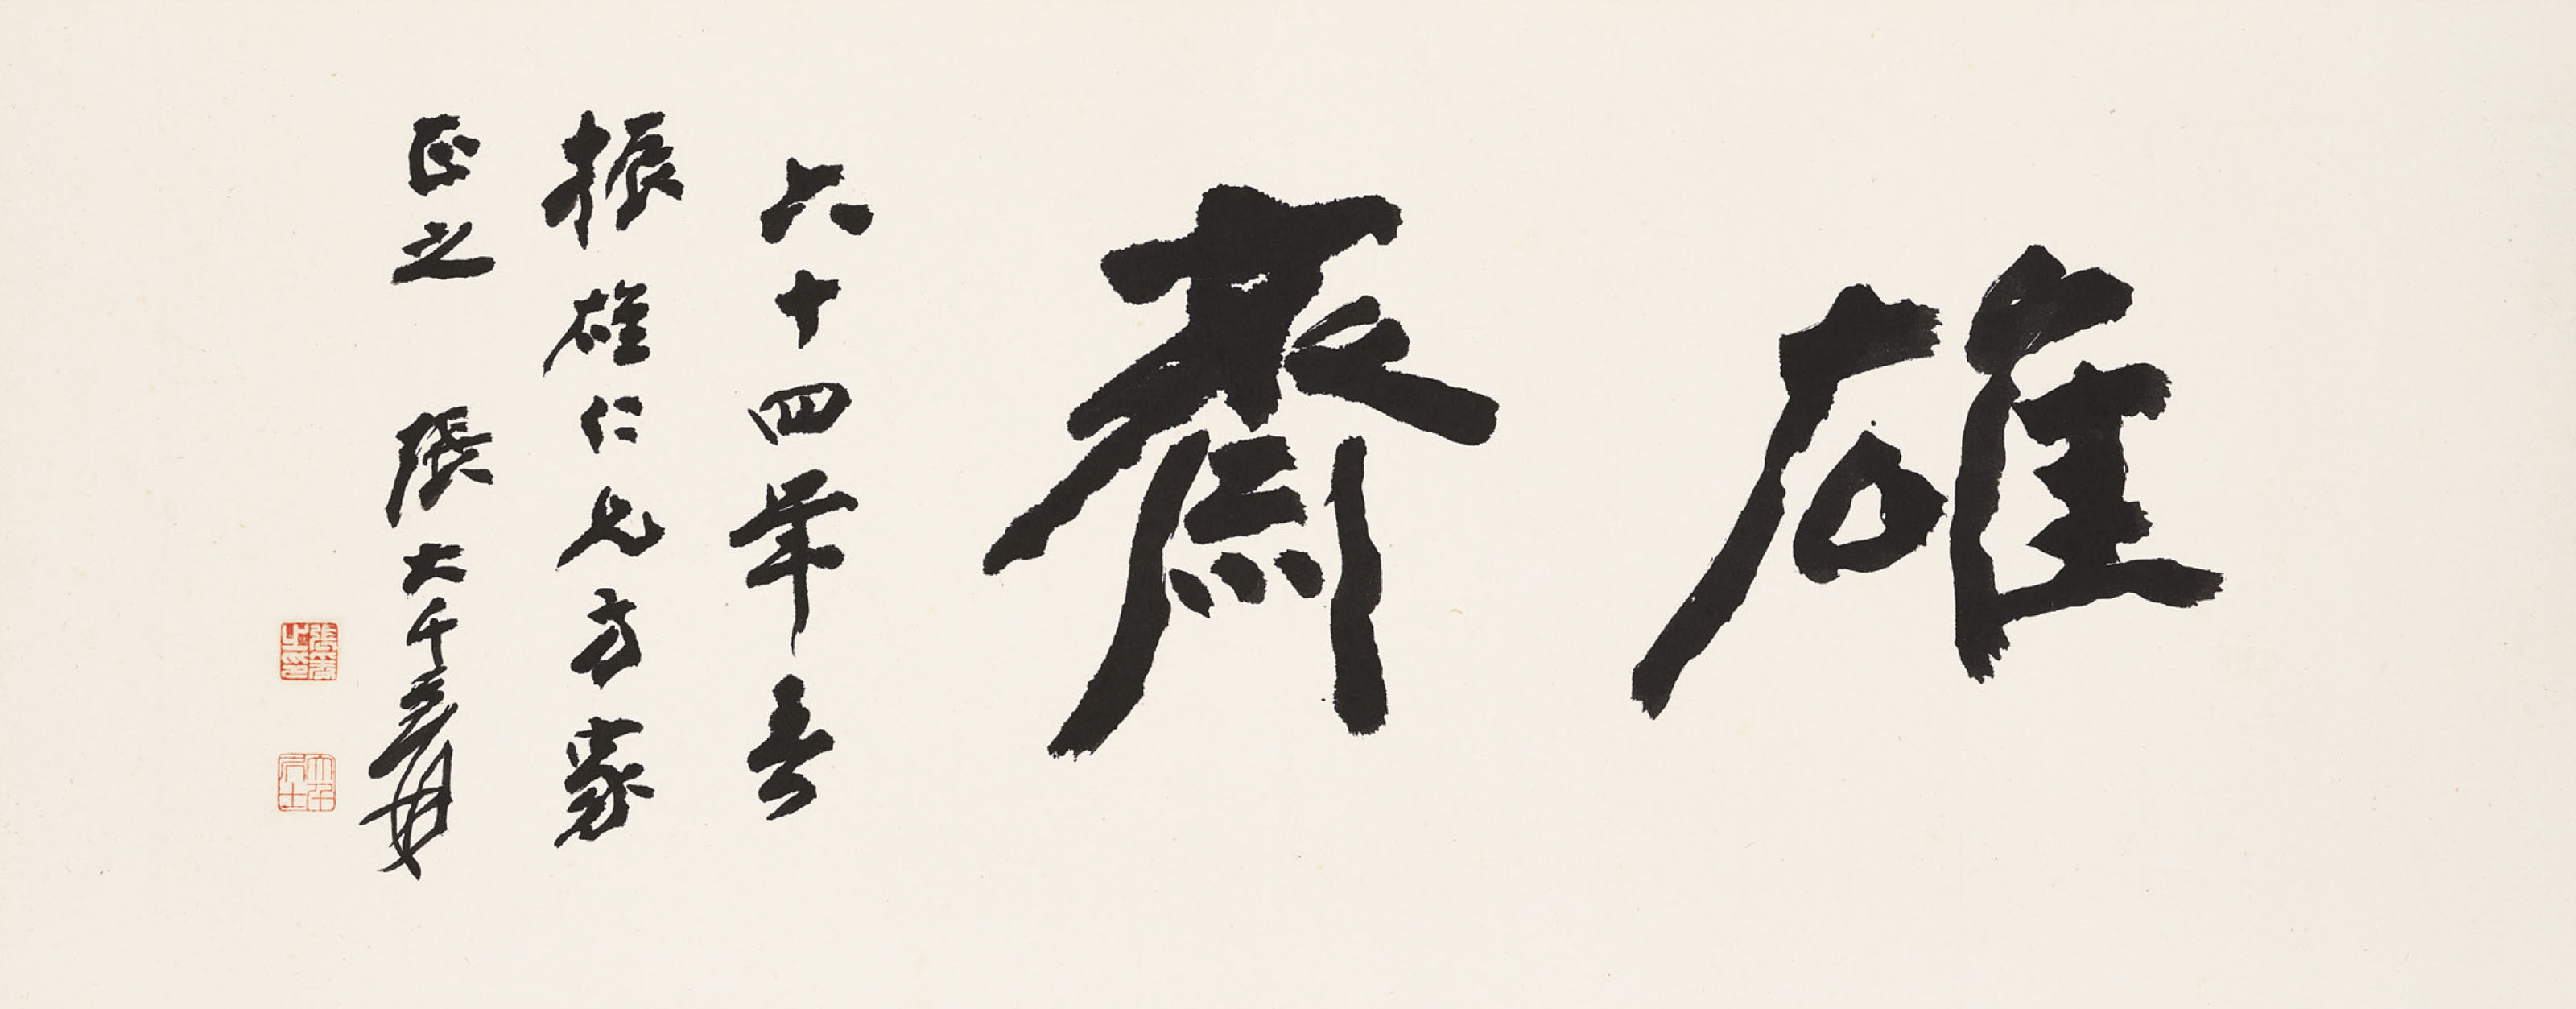 雄齋
六十四年春
振雄仁兄方家
正之 張大千爰
張爰之印
大千居士